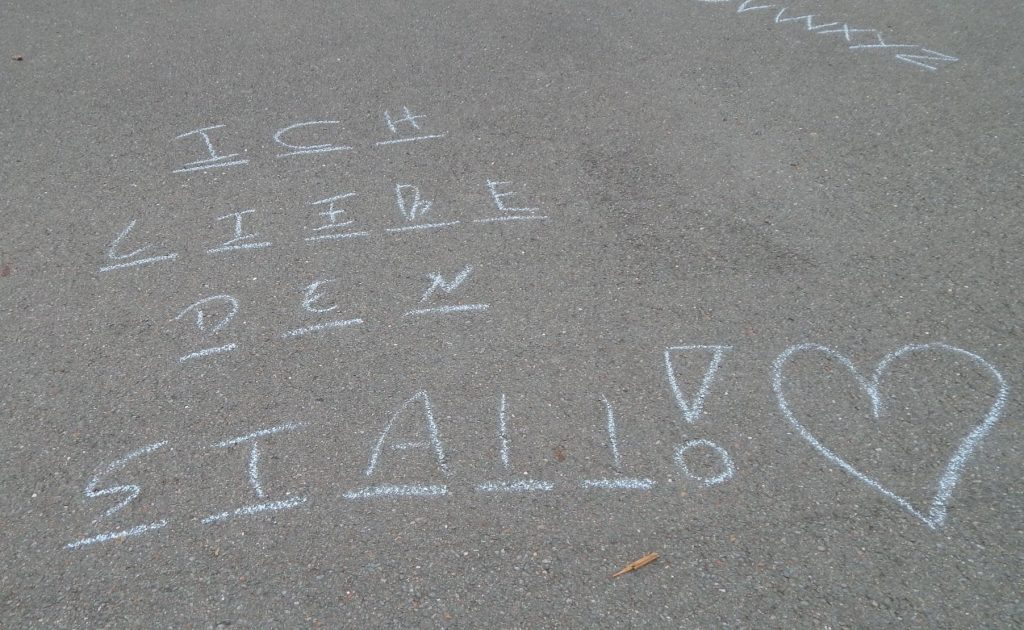 ICH
LIEBE
DEN
STALL!